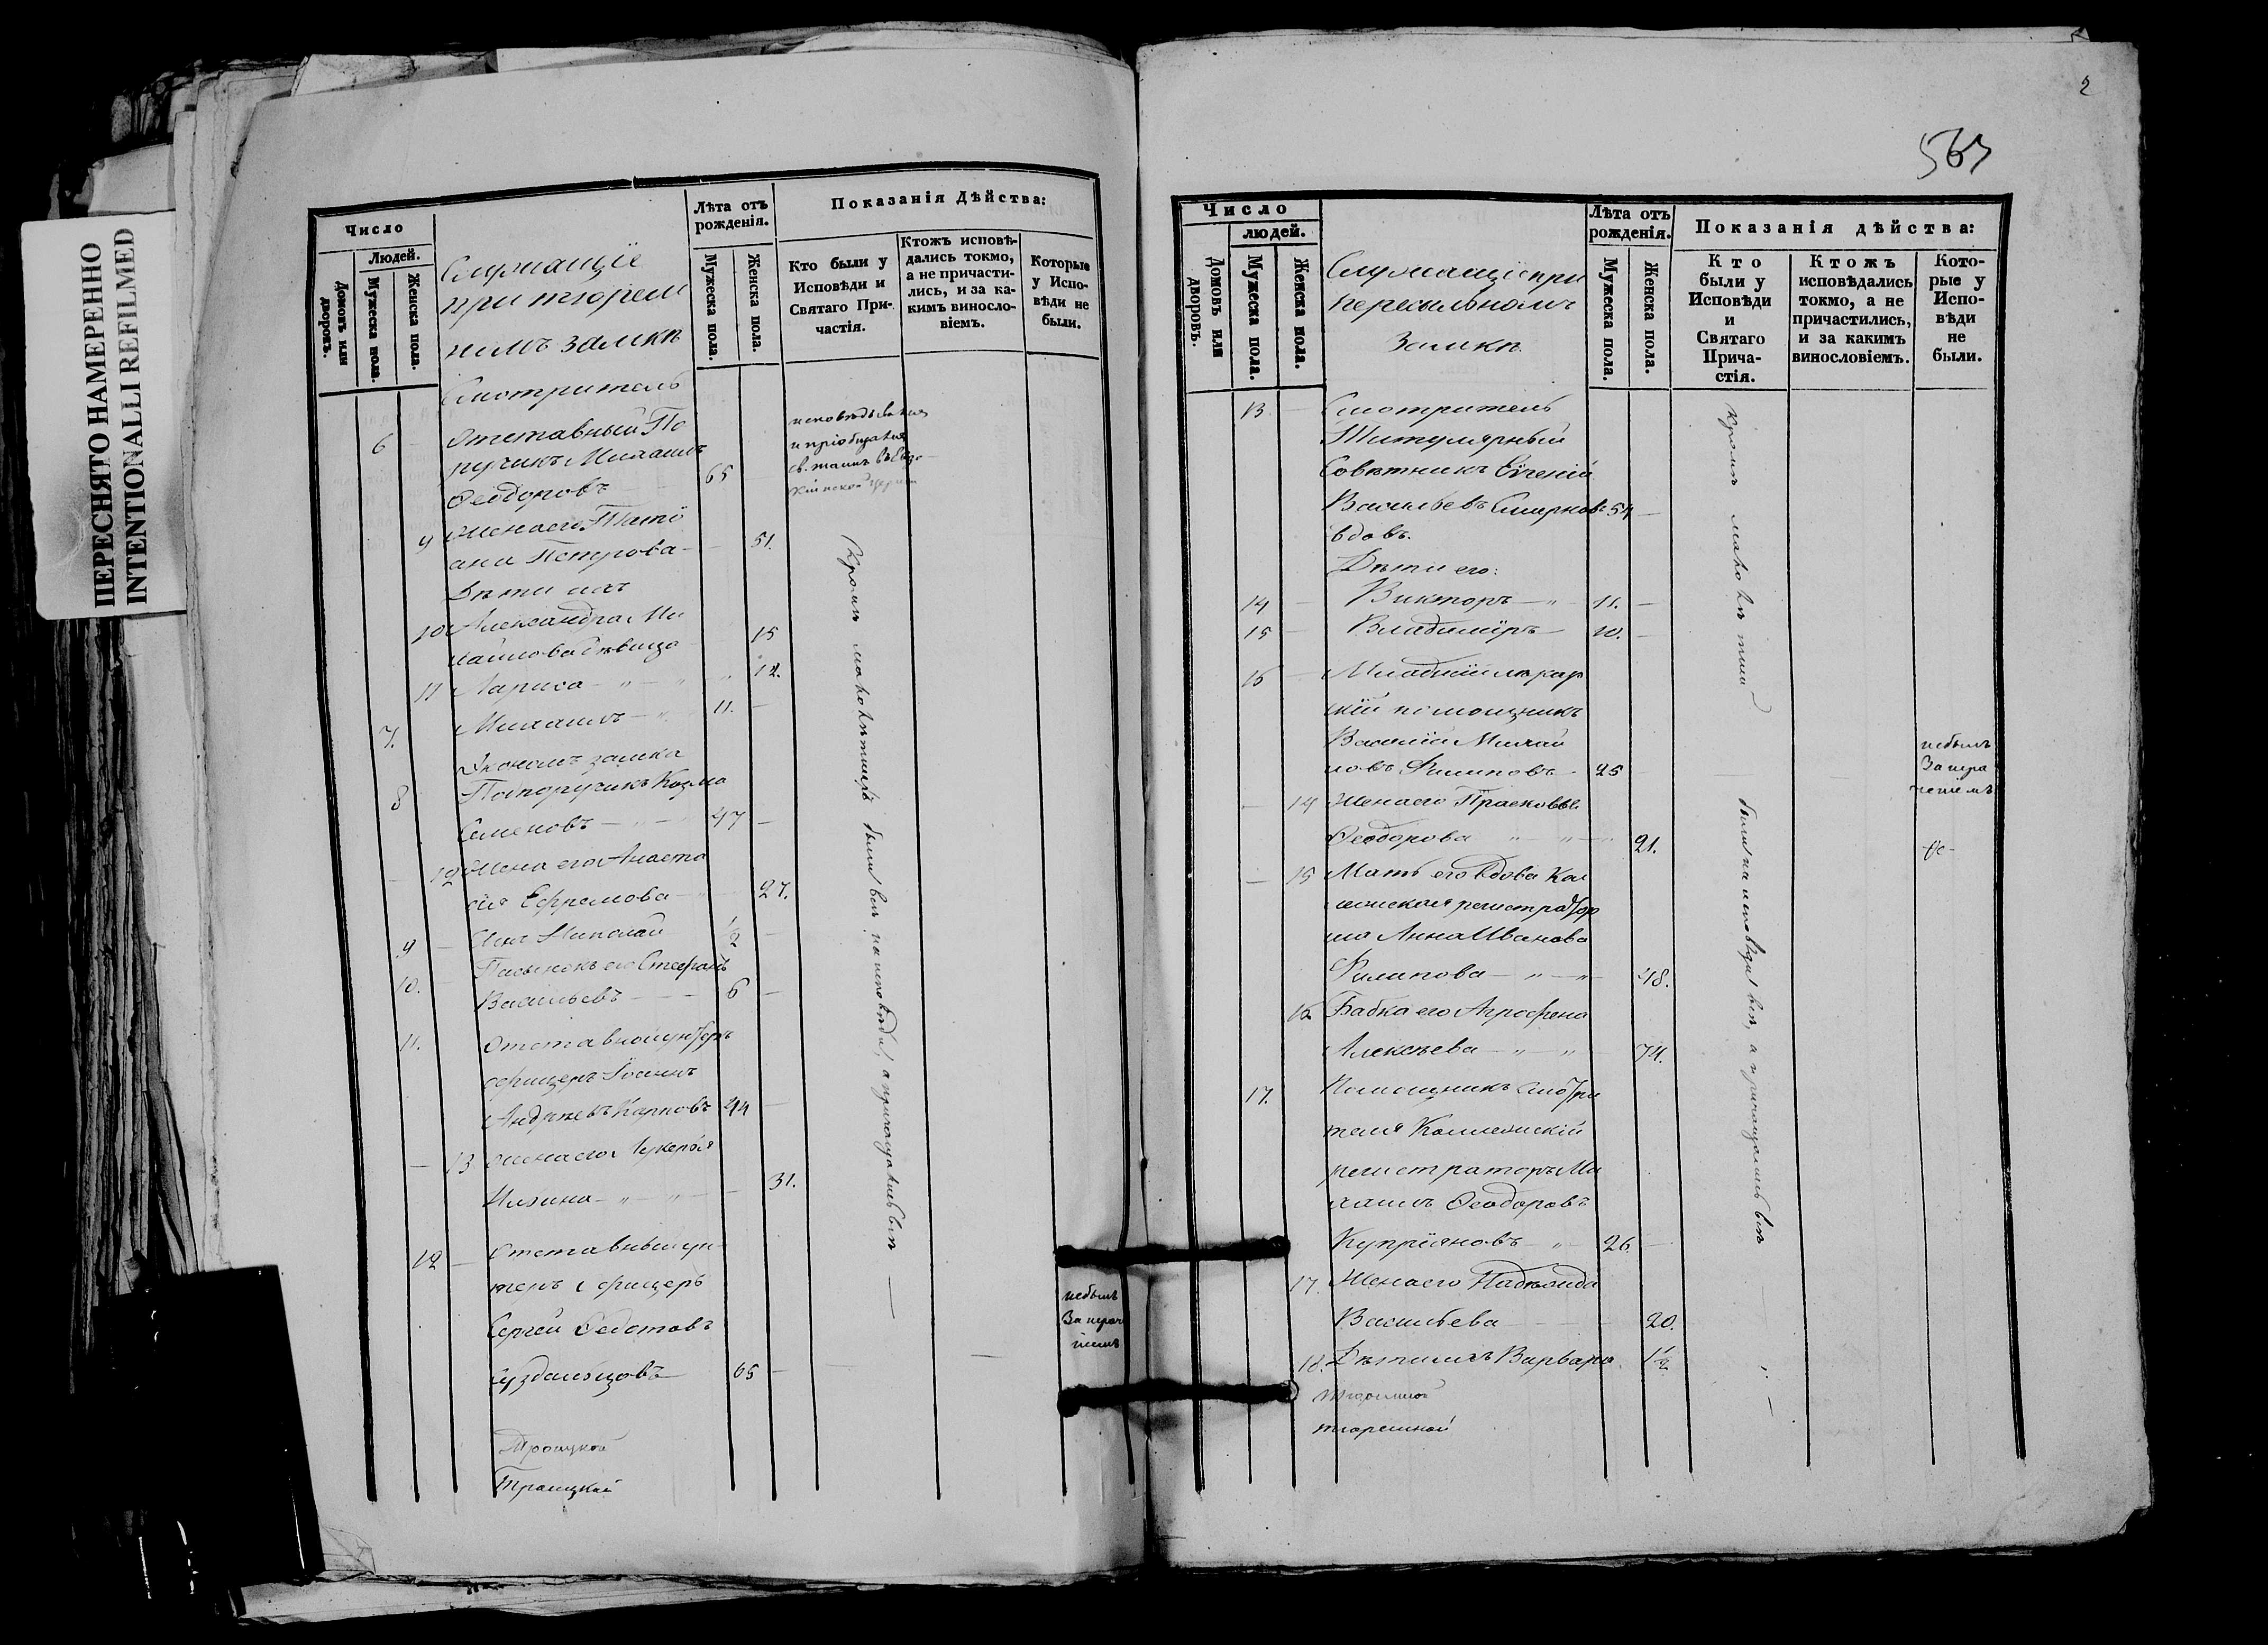 ПЕРЕСНЯТО НАМЕРЕННО
INTENTIONALLI REFILMED
Число
Людей.
Домовъ или дворовъ.
Мужеска пола.
Женска пола.
Служащіе
при тюрем
номъ замкѣ
Лѣта отъ рожденія.
Мужеска пола.
Женска пола.
Показанія Дѣйства:
Кто были у Исповѣди и Святаго Причастія.
Ктожъ исповѣдались токмо, а не причастились, и за какимъ винословіемъ.
Которые у Исповѣди не были.
Смотритель
6 Отставный По
ручикъ Михаилъ
Ѳеодоровъ 65
исповѣдывался
и пріобщался
св. таинъ въ
9 Жена его Татіа
ана Петрова 51.
Дѣти ихъ
10 Александра Ми
хайлова дѣвица 15
11 Лариса — " — " " 12.
7. Михаилъ — " 11. —
Экономъ замка
8 Подпоручикъ Козма
Семеновъ — " — 47 —
12 Жена его Анаста
сія Ефремова — 27.
9 — Сынъ Николай 1/2 —
10. Пасынокъ его Стефанъ
Васильевъ — — 6 —
11. Отставной унтеръ
офицеръ Іоаннъ
Андреевъ Карповъ 44 —
— 13 Жена его Лукерья
Ильина — " — " — 31.
12 — Отставный ун
теръ офицеръ
Сергей Ѳедотовъ
Суздальцовъ — 65 — — —
Кромѣ малолѣтнихъ были всѣ на исповѣди, а причащались всѣ —
небылъ
За нерач
ніемъ
Троицкой
Троицкій
2
565
Число
людей.
Домовъ или дворовъ.
Мужеска пола.
Женска пола.
Служащіе при
пересыльномъ
Замкѣ.
Лѣта отъ рожденія.
Мужеска пола.
Женска пола.
Показанія дѣйства:
Кто были у Исповѣди и Святаго Причастія.
Ктожъ исповѣдались токмо, а не причастились, и за какимъ винословіемъ.
Которые у Исповѣди не были.
13. — Смотритель
Титулярный
Совѣтникъ Евгеній
Васильевъ Смирновъ 54 —
вдовъ.
Дѣти его:
14 — Викторъ — " — 11. —
15 — Владиміръ — 10. —
16 — Младшій лекар
скій помощникъ
Василій Михай
ловъ Филиповъ 25 —
небылъ
За нера
ченіемъ
— 14 Жена его Прасковья
Ѳеодорова " — " — 21.
— 15 Мать его вдова Кол
лежская регистратор
ша Анна Иванова
Филипова — " — " — 48.
16 Бабка его Агрофена
Алексѣева — " — " — 74.
17. Помощникъ смотри
теля Коллежскій
регистраторъ Ми
хаилъ Ѳеодоровъ
Купріяновъ — " — 26. —
17. Жена его Надежда
Васильева — — 20.
18. Дѣти ихъ Варвара 1 1/2
Кромѣ малолѣтнихъ были на исповѣди всѣ, а причащались всѣ —
тюремной
тюремной